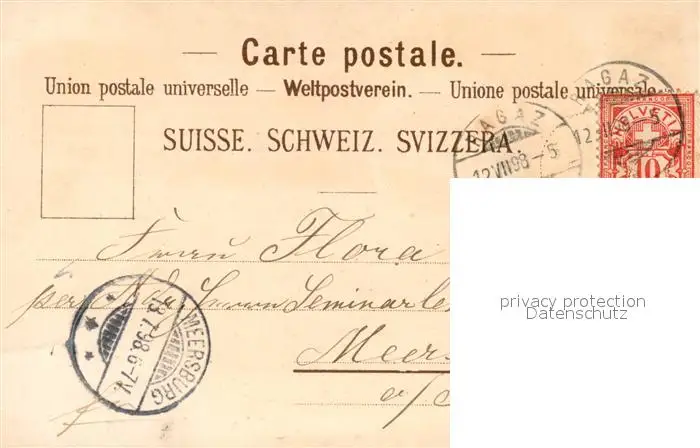 Carte postale.
Union postale universelle — Weltpostverein. — Unione postale universale.
SUISSE. SCHWEIZ. SVIZZERA.
RAGAZ
12.VII.98-5
RAGAZ
12.VII
HELVETIA
10
Flora
per Seminarle
Meers
a/
MEERSBURG
98.6-7N.
privacy protection
Datenschutz